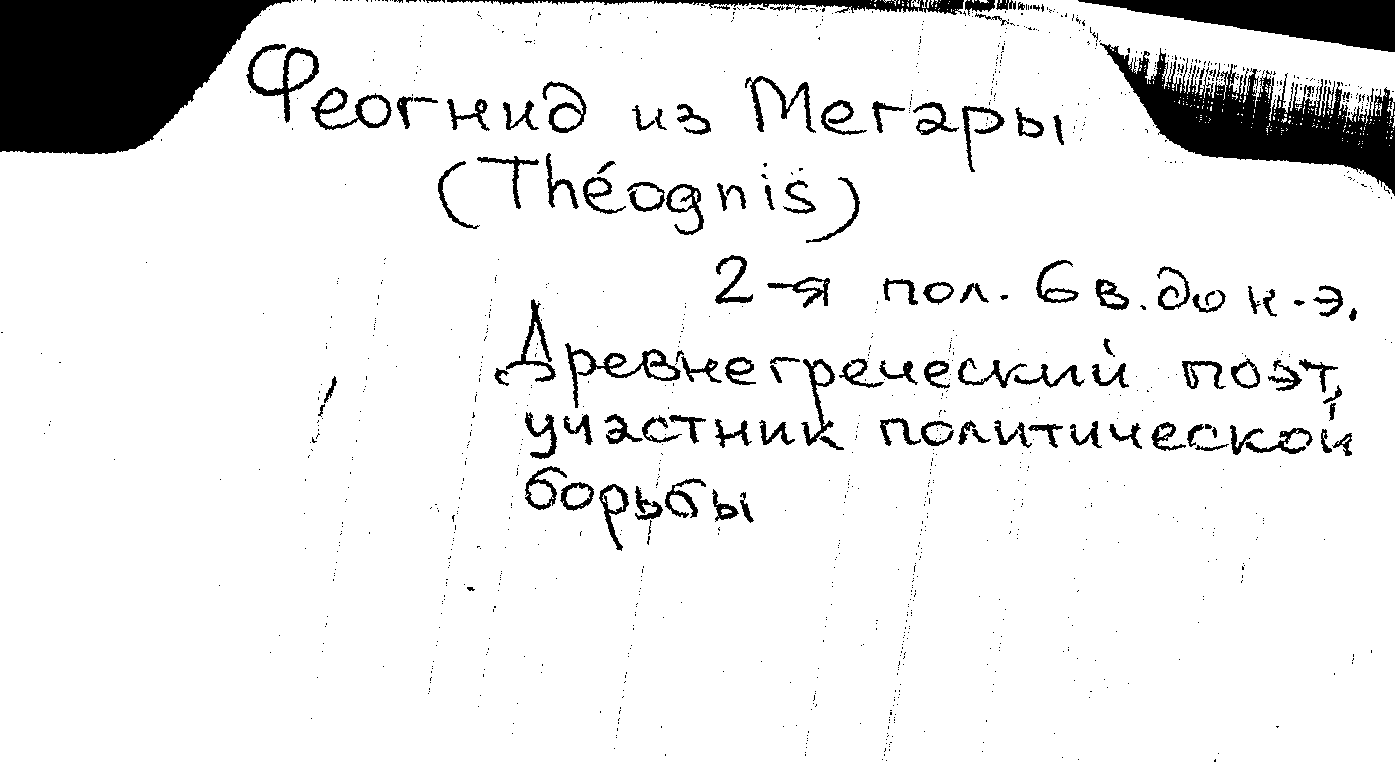 Феогнид из Мегары
(Théognis)
2-я пол. 6 в. до н.э.
Древнегреческий поэт,
участник политической
борьбы